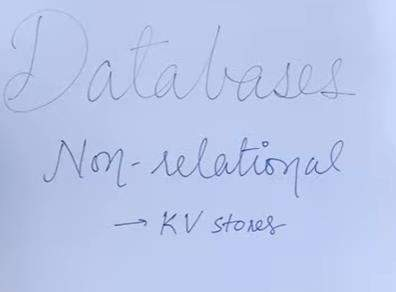 Databases
Non-relational
→ KV stores